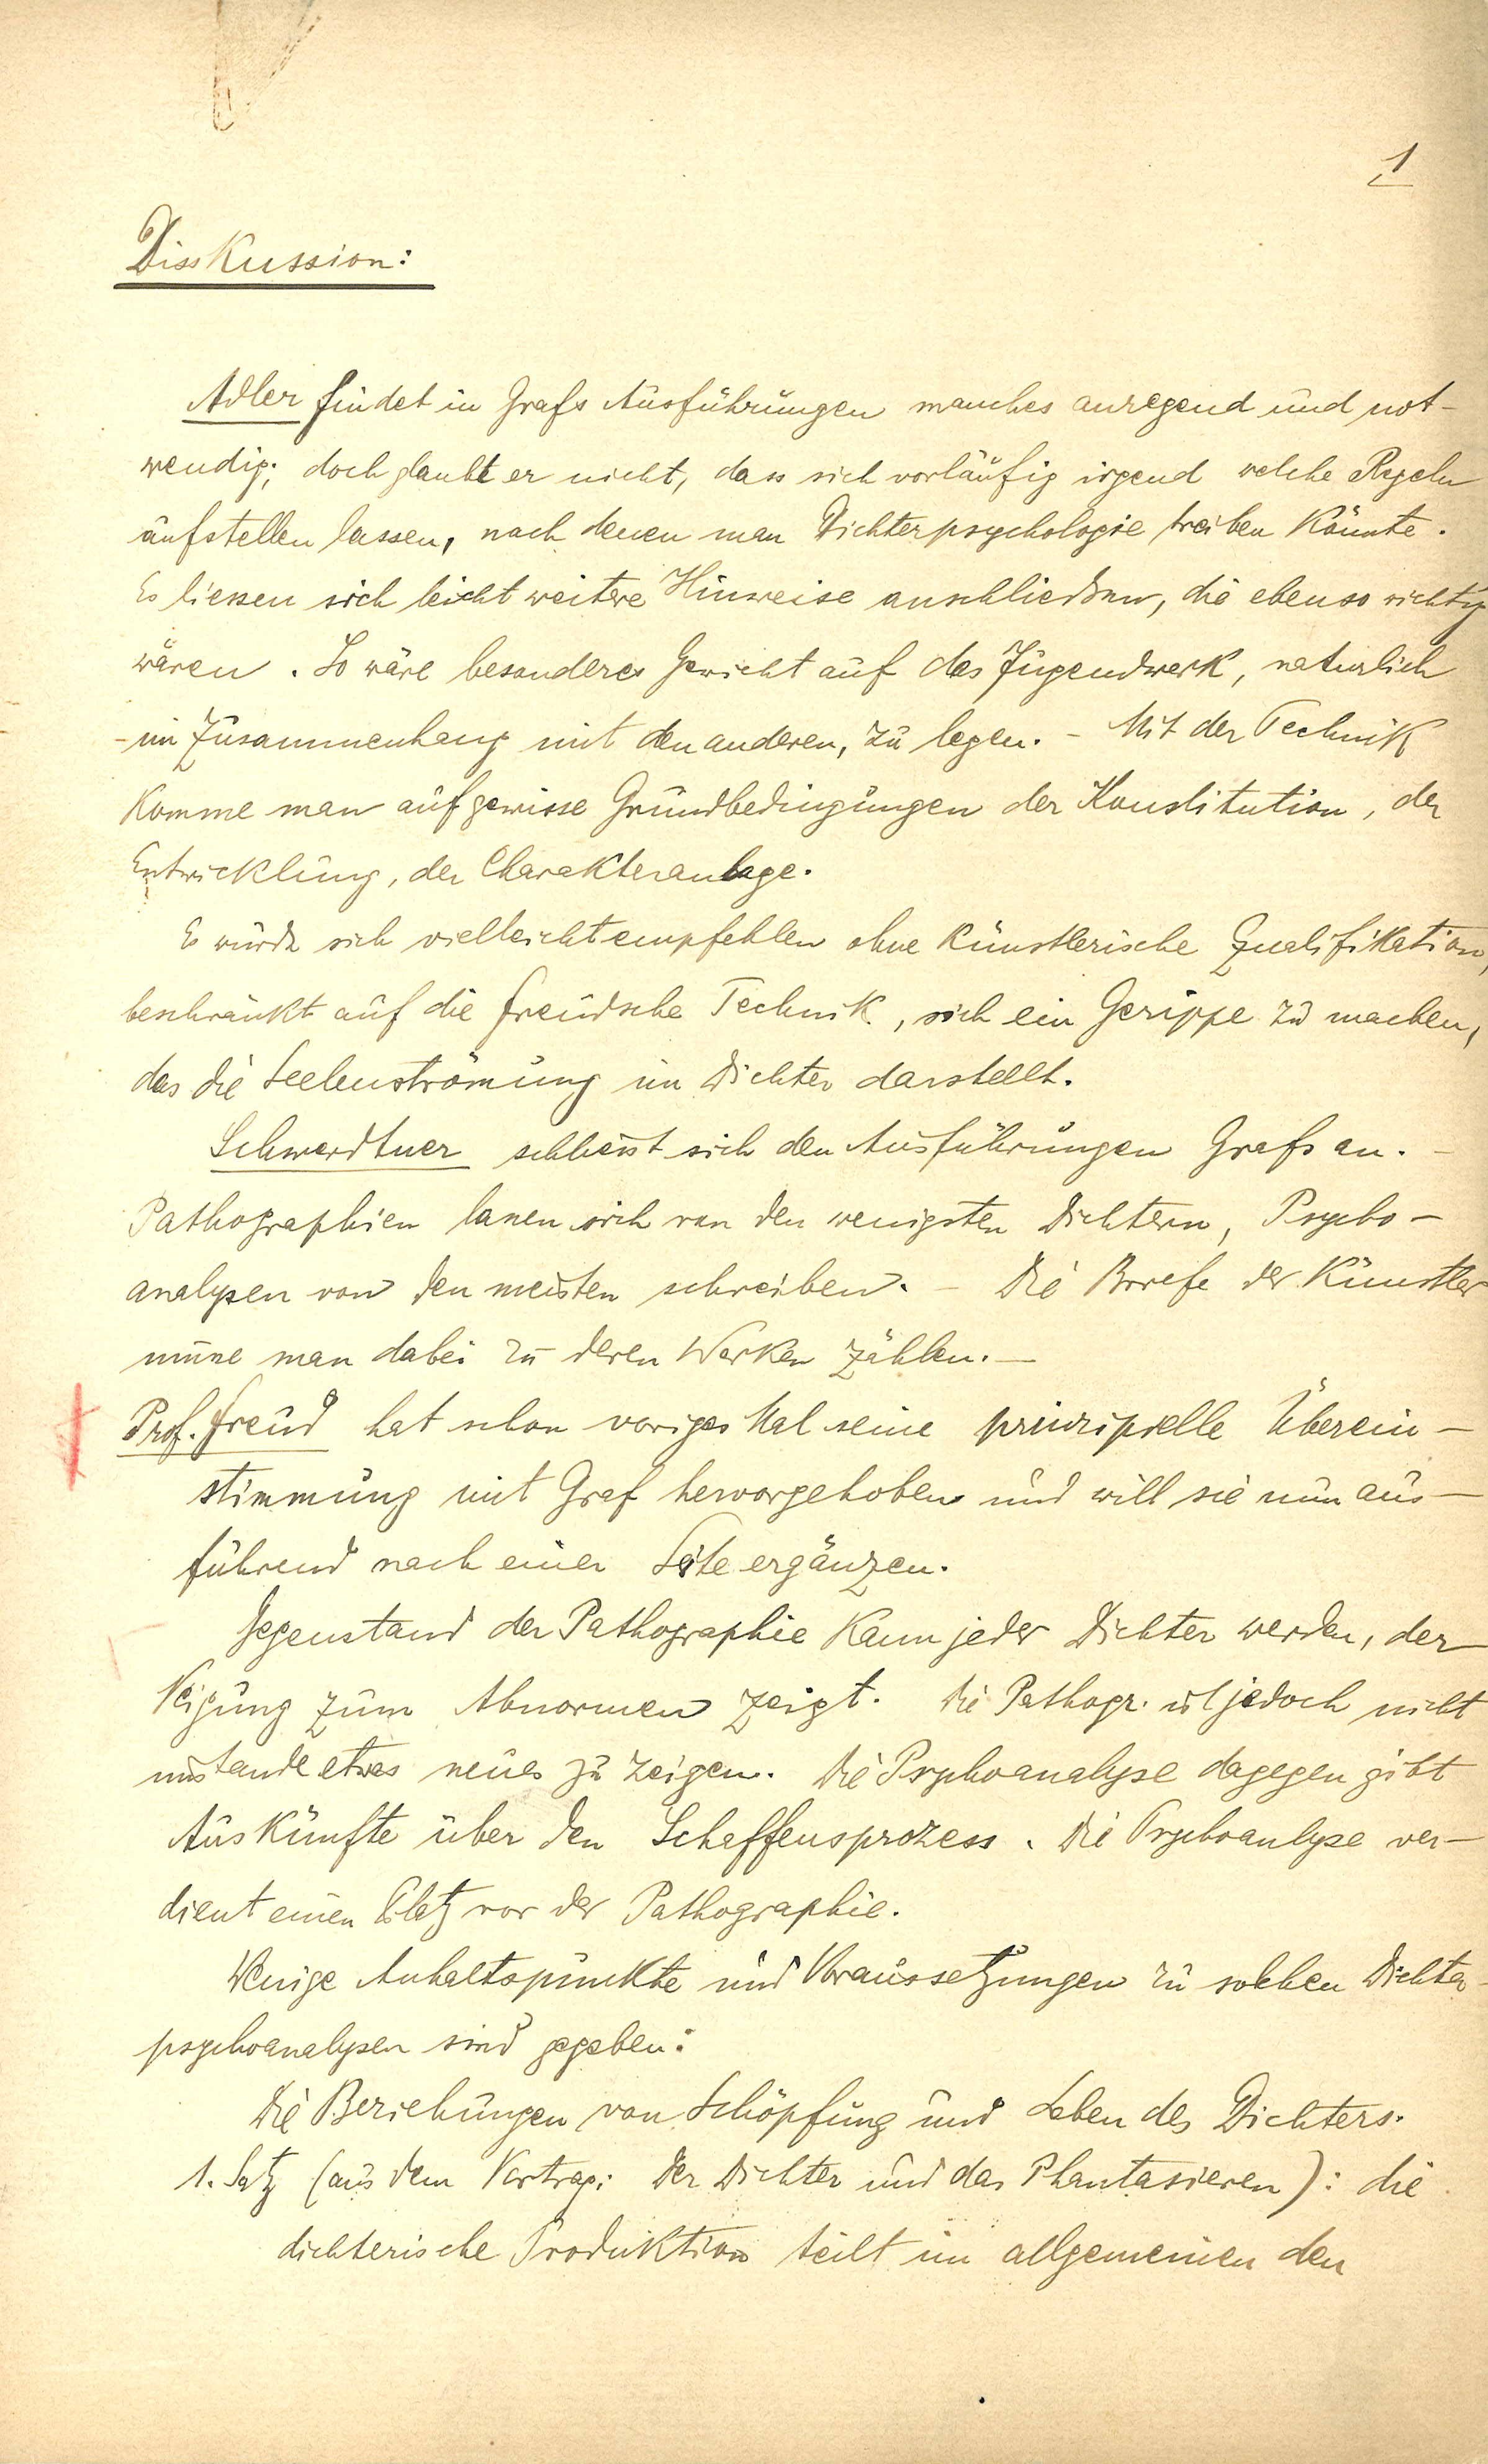 1
Disskussion:
Adler findet in Grafs Ausführungen manches anregend und not-
wendig; doch glaubt er nicht, dass sich vorläufig irgend welche Regeln
aufstellen lassen, nach denen man Dichterpsychologie treiben könnte.
Es liessen sich leicht weitere Hinweise anschließen, die ebenso richtig
wären. So wäre besonderes Gewicht auf das Jugendwerk, natürlich
im Zusammenhang mit den anderen, zu legen. - Mit der Technik
komme man auf gewisse Grundbedingungen der Konstitution, der
Entwicklung, der Charakteranlage.
Es würde sich vielleicht empfehlen ohne künstlerische Qualifikation,
beschränkt auf die freudsche Technik, sich ein Gerippe zu machen,
das die Seelenströmung im Dichter darstellt.
Schwerdtner schliesst sich den Ausführungen Grafs an. -
Pathographien lassen sich von den wenigsten Dichtern, Psycho-
analysen von den meisten schreiben. - Die Briefe der Künstler
müsse man dabei zu deren Werken zählen. -
Prof. Freud hat schon voriges Mal seine prinzipielle Überein-
stimmung mit Graf hervorgehoben und will sie nun aus-
führend nach einer Seite ergänzen.
Gegenstand der Pathographie kann jeder Dichter werden, der
Neigung zum Abnormen zeigt. Die Pathogr. ist jedoch nicht
imstande etwas neues zu zeigen. Die Psychoanalyse dagegen gibt
Auskünfte über den Schaffensprozess. Die Psychoanlyse ver-
dient einen Platz vor der Pathographie.
Wenige Anhaltspunkte und Voraussetzungen zu solchen Dichter-
psychoanalysen sind gegeben:
Die Beziehungen von Schöpfung und Leben des Dichters.
1. Satz (aus dem Vortrag: Der Dichter und das Phantasieren): die
dichterische Produktion teilt im allgemeinen den